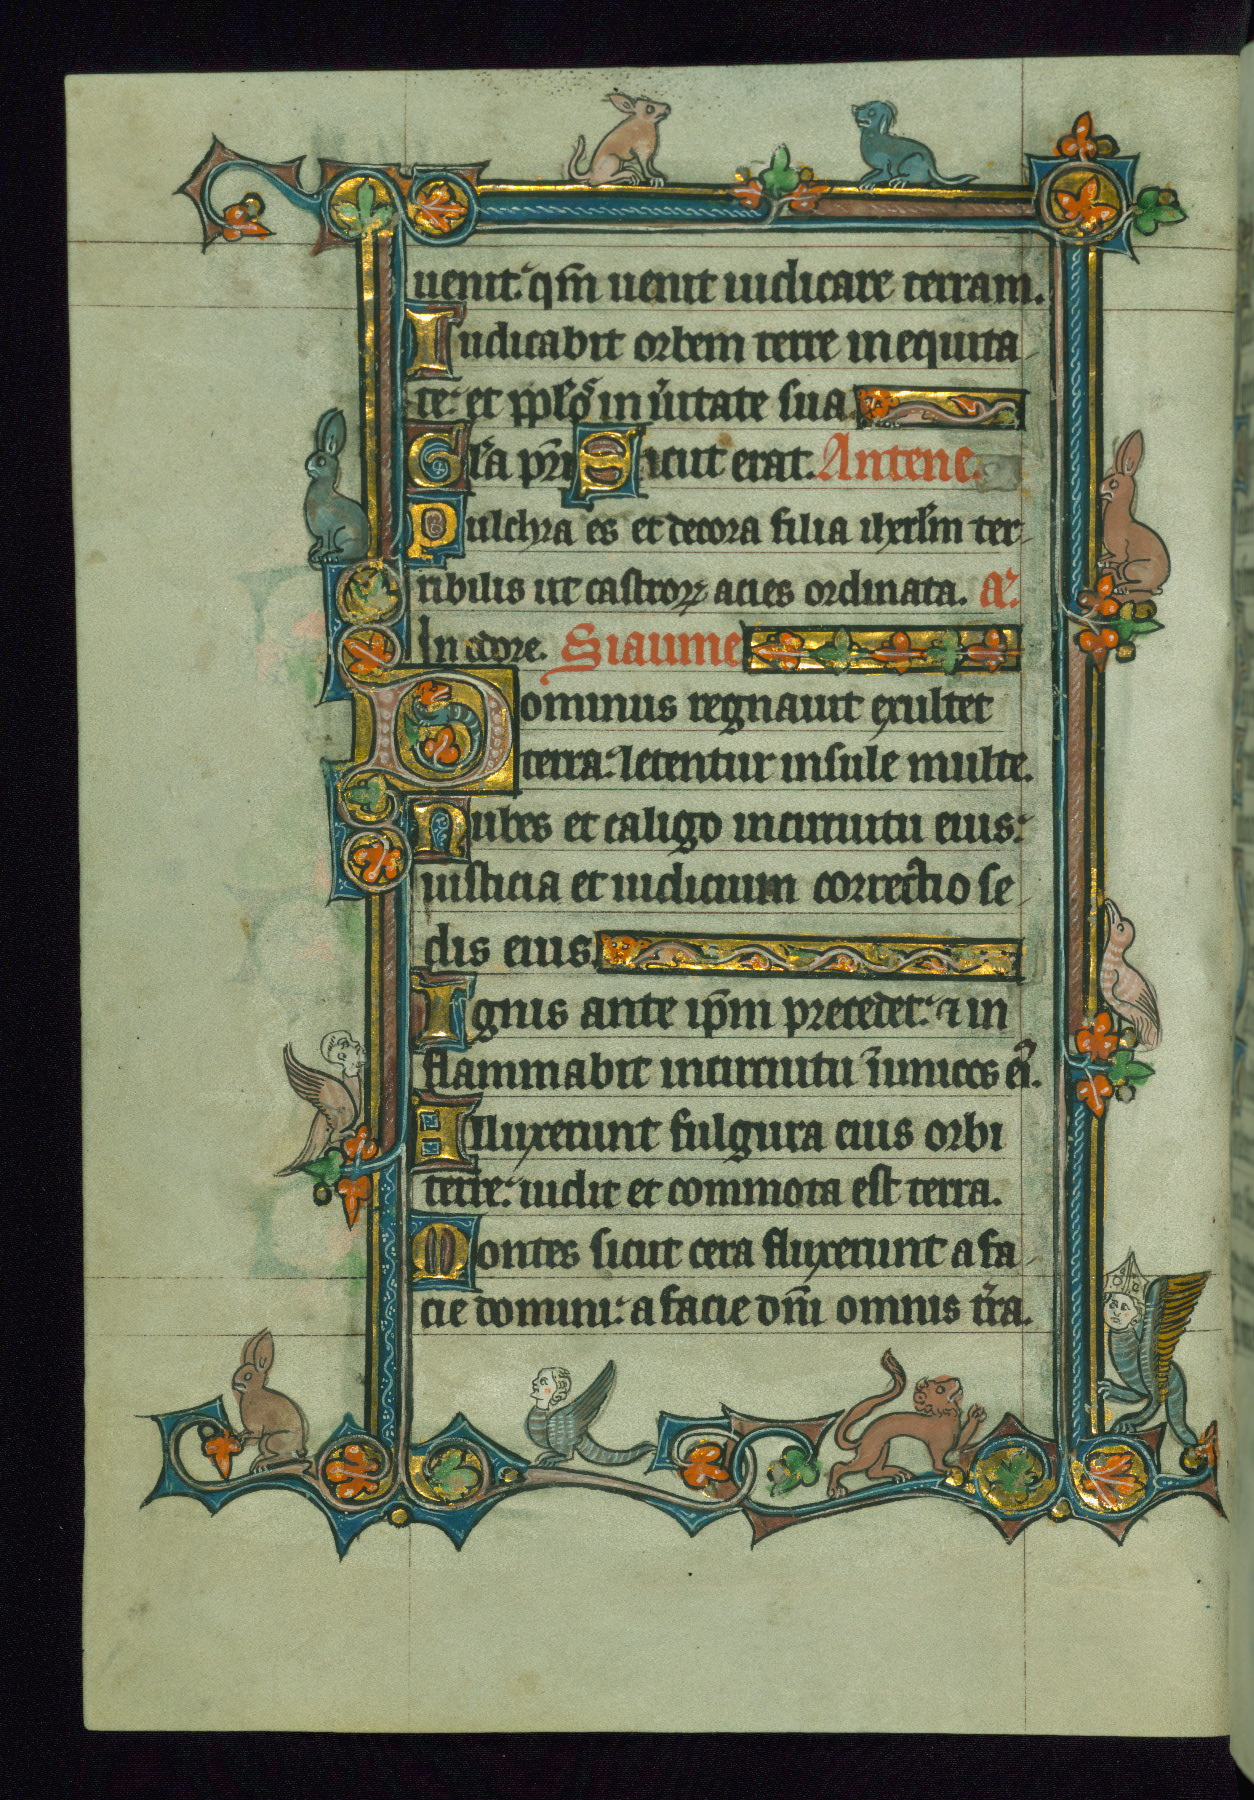 uenit: qm̄ uenit iudicare terram.
Iudicabit orbem terre in equita
te: et ppl̓os in ūitate sua
Gl̓a pr̄i Sicut erat. Antene.
Pulchra es et decora filia ihrl̓m ter
ribilis ut castroꝝ acies ordinata. a̓.
In odore. Siaume
Dominus regnauit exultet
terra: letentur insule multe.
Nubes et caligo in circuitu eius:
iusticia et iudicium correctio se
dis eius.
Ignis ante ip̄m precedet: ⁊ in
flammabit in circuitu īimicos ei̓.
Alluxerunt fulgura eius orbi
terre: uidit et commota est terra.
Montes sicut cera fluxerunt a fa
cie domini: a facie dn̄i omnis tr̄a.